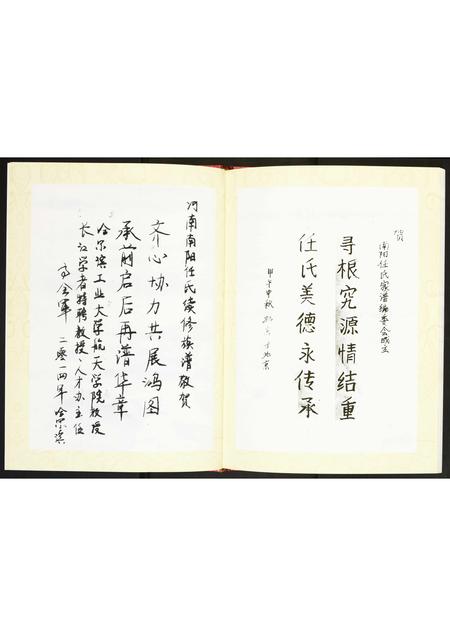 贺
南阳任氏家谱编委会成立
寻根究源情结重
任氏美德永传承
甲午中秋 于北京
河南南阳任氏续修族谱敬贺
齐心协力共展鸿图
承前启后再谱华章
哈尔滨工业大学航天学院教授
长江学者特聘教授、人才办主任
会军 二零一四年 哈尔滨